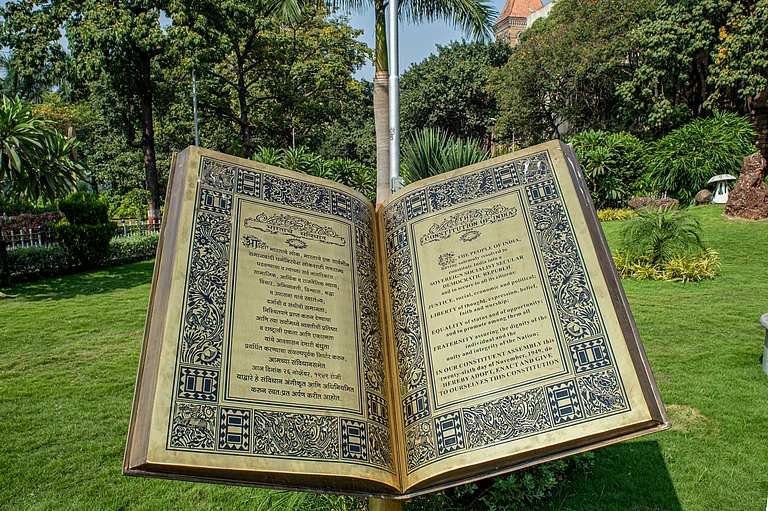 भारताचे संविधान
आम्ही भारताचे लोक, भारताचे एक सार्वभौम
समाजवादी धर्मनिरपेक्ष लोकशाही गणराज्य
घडवण्याचा व त्याच्या सर्व नागरिकांस
सामाजिक, आर्थिक व राजनैतिक न्याय;
विचार, अभिव्यक्ती, विश्वास, श्रद्धा
व उपासना यांचे स्वातंत्र्य;
दर्जाची व संधीची समानता;
निश्चितपणे प्राप्त करून देण्याचा
आणि त्या सर्वांमध्ये व्यक्तीची प्रतिष्ठा
व राष्ट्राची एकता आणि एकात्मता
यांचे आश्वासन देणारी बंधुता
प्रवर्धित करण्याचा संकल्पपूर्वक निर्धार करून,
आमच्या संविधानसभेत
आज दिनांक २६ नोव्हेंबर, १९४९ रोजी
याद्वारे हे संविधान अंगीकृत आणि अधिनियमित
करून स्वतःप्रत अर्पण करीत आहोत.
CONSTITUTION OF INDIA
WE, THE PEOPLE OF INDIA,
having solemnly resolved to
constitute India into a
SOVEREIGN SOCIALIST SECULAR
DEMOCRATIC REPUBLIC
and to secure to all its citizens:
JUSTICE, social, economic and political,
LIBERTY of thought, expression, belief,
faith and worship,
EQUALITY of status and of opportunity;
and to promote among them all
FRATERNITY assuring the dignity of the
individual and the
unity and integrity of the Nation;
IN OUR CONSTITUENT ASSEMBLY this
twenty-sixth day of November, 1949, do
HEREBY ADOPT, ENACT AND GIVE
TO OURSELVES THIS CONSTITUTION